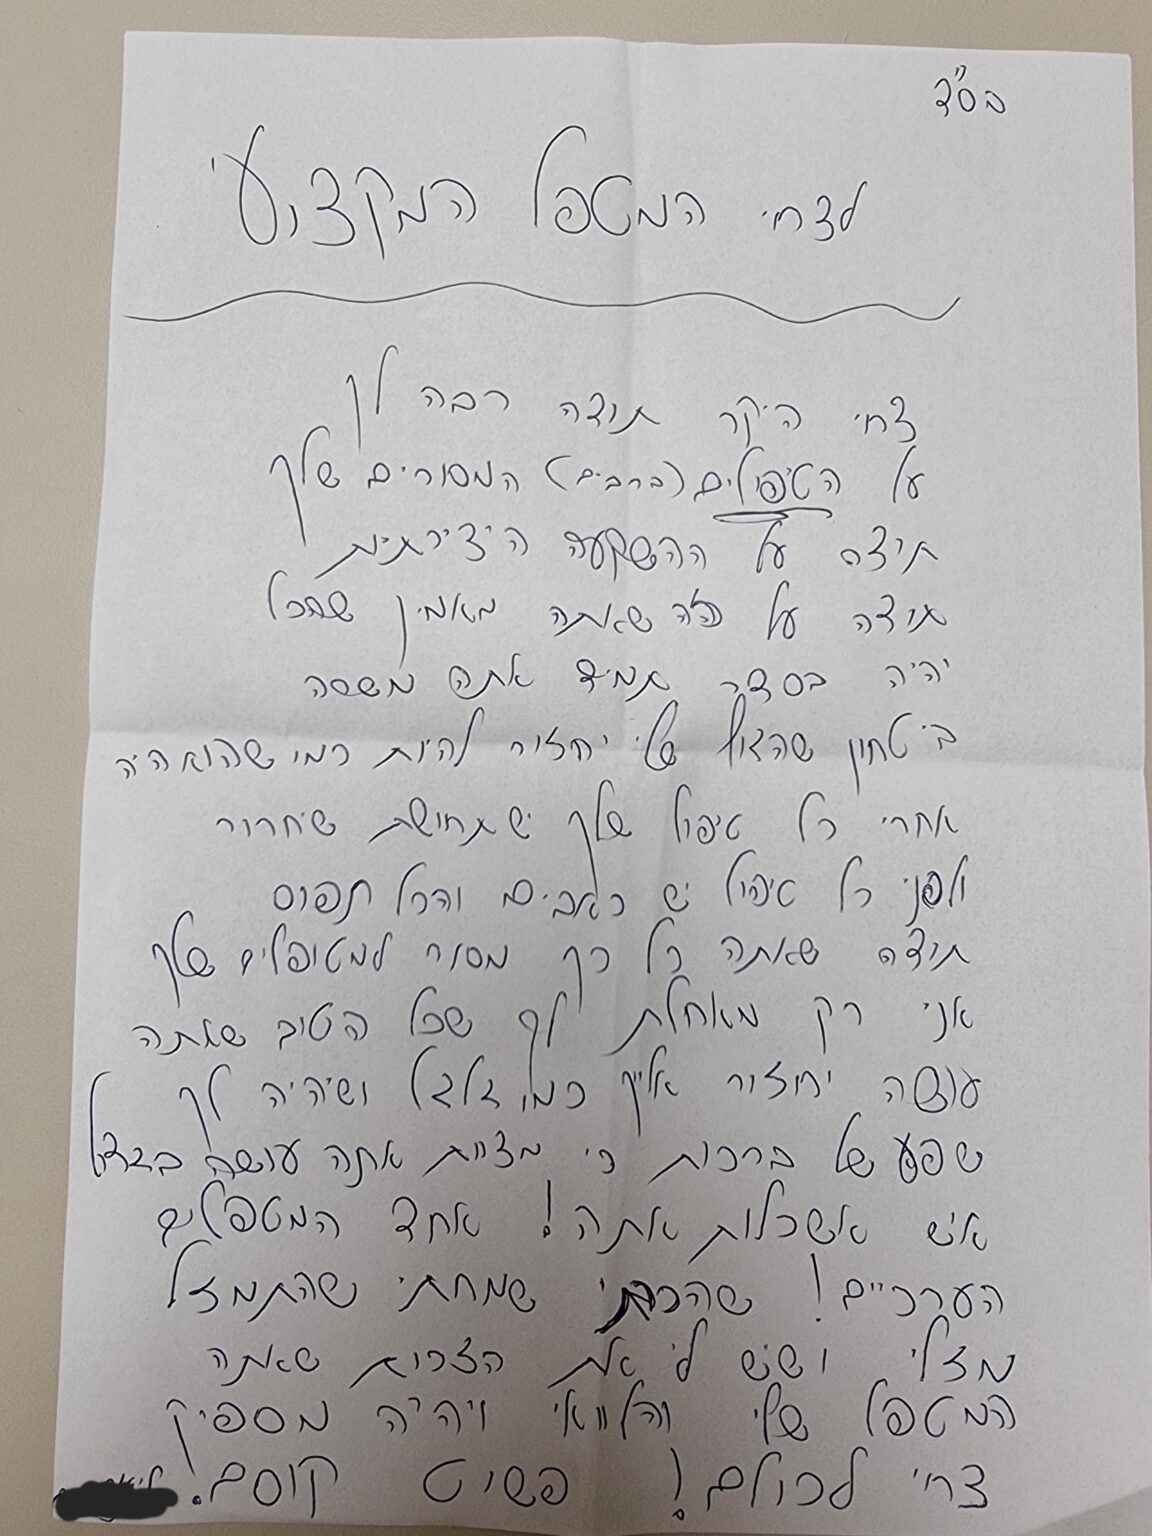 בסי"ד
לצחי המטפל המקצועי
צחי היקר תודה רבה לך
על הטיפולים (ברבים) המסורים שלך
תודה על ההשקעה היצירתית
תודה על זה שאתה מאמין שהכל
יהיה בסדר תמיד אתה משסה
ביטחון שהגוף שלי יחזור להיות כמו שהוא היה
אחרי כל טיפול שלך יש תחושת שיחרור
ולפני כל טיפול יש כאבים והכל תפוס
תודה שאתה כל כך מסור למטופלים שלך
אני רק מאחלת לך שכל הטוב שאתה
עושה יחזור אלייך כמו גלגל ושיהיה לך
שפע של ברכות כי מצוות אתה עושה בגדול
איש אשכולות אתה! אחד המטפלים
הערכיים! שהכרתי שמחתי שהתמזל
מזלי ושיש לי את הזכות שאתה
המטפל שלי והלוואי ויהיה מספיק
צחי לכולם! פשוט קוסם!